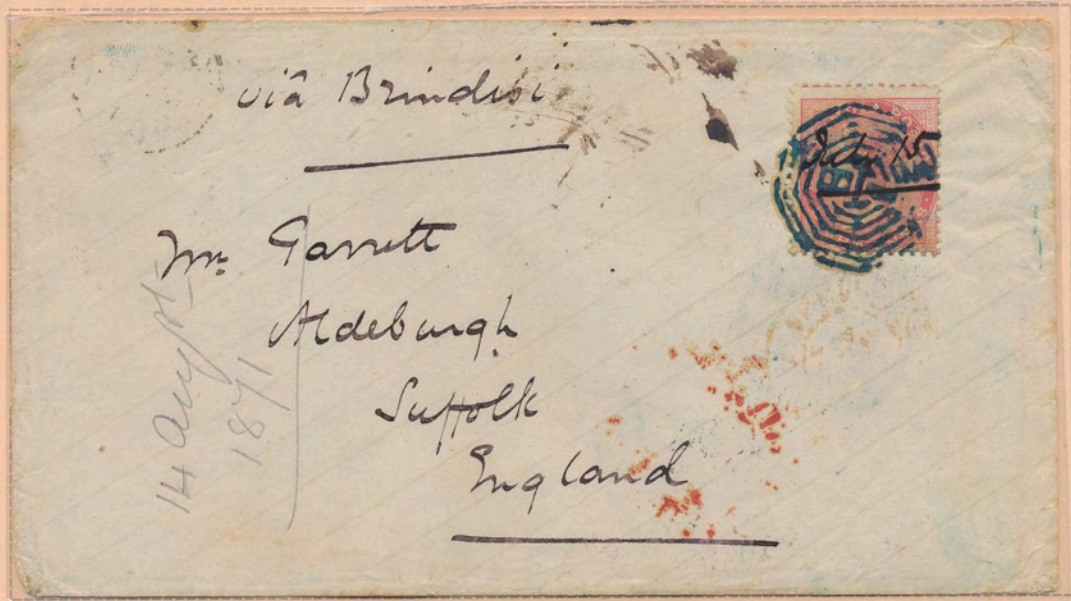 via Brindisi
July 15
Mr. Garrett
Aldeburgh
Suffolk
England
14 Augst
1871